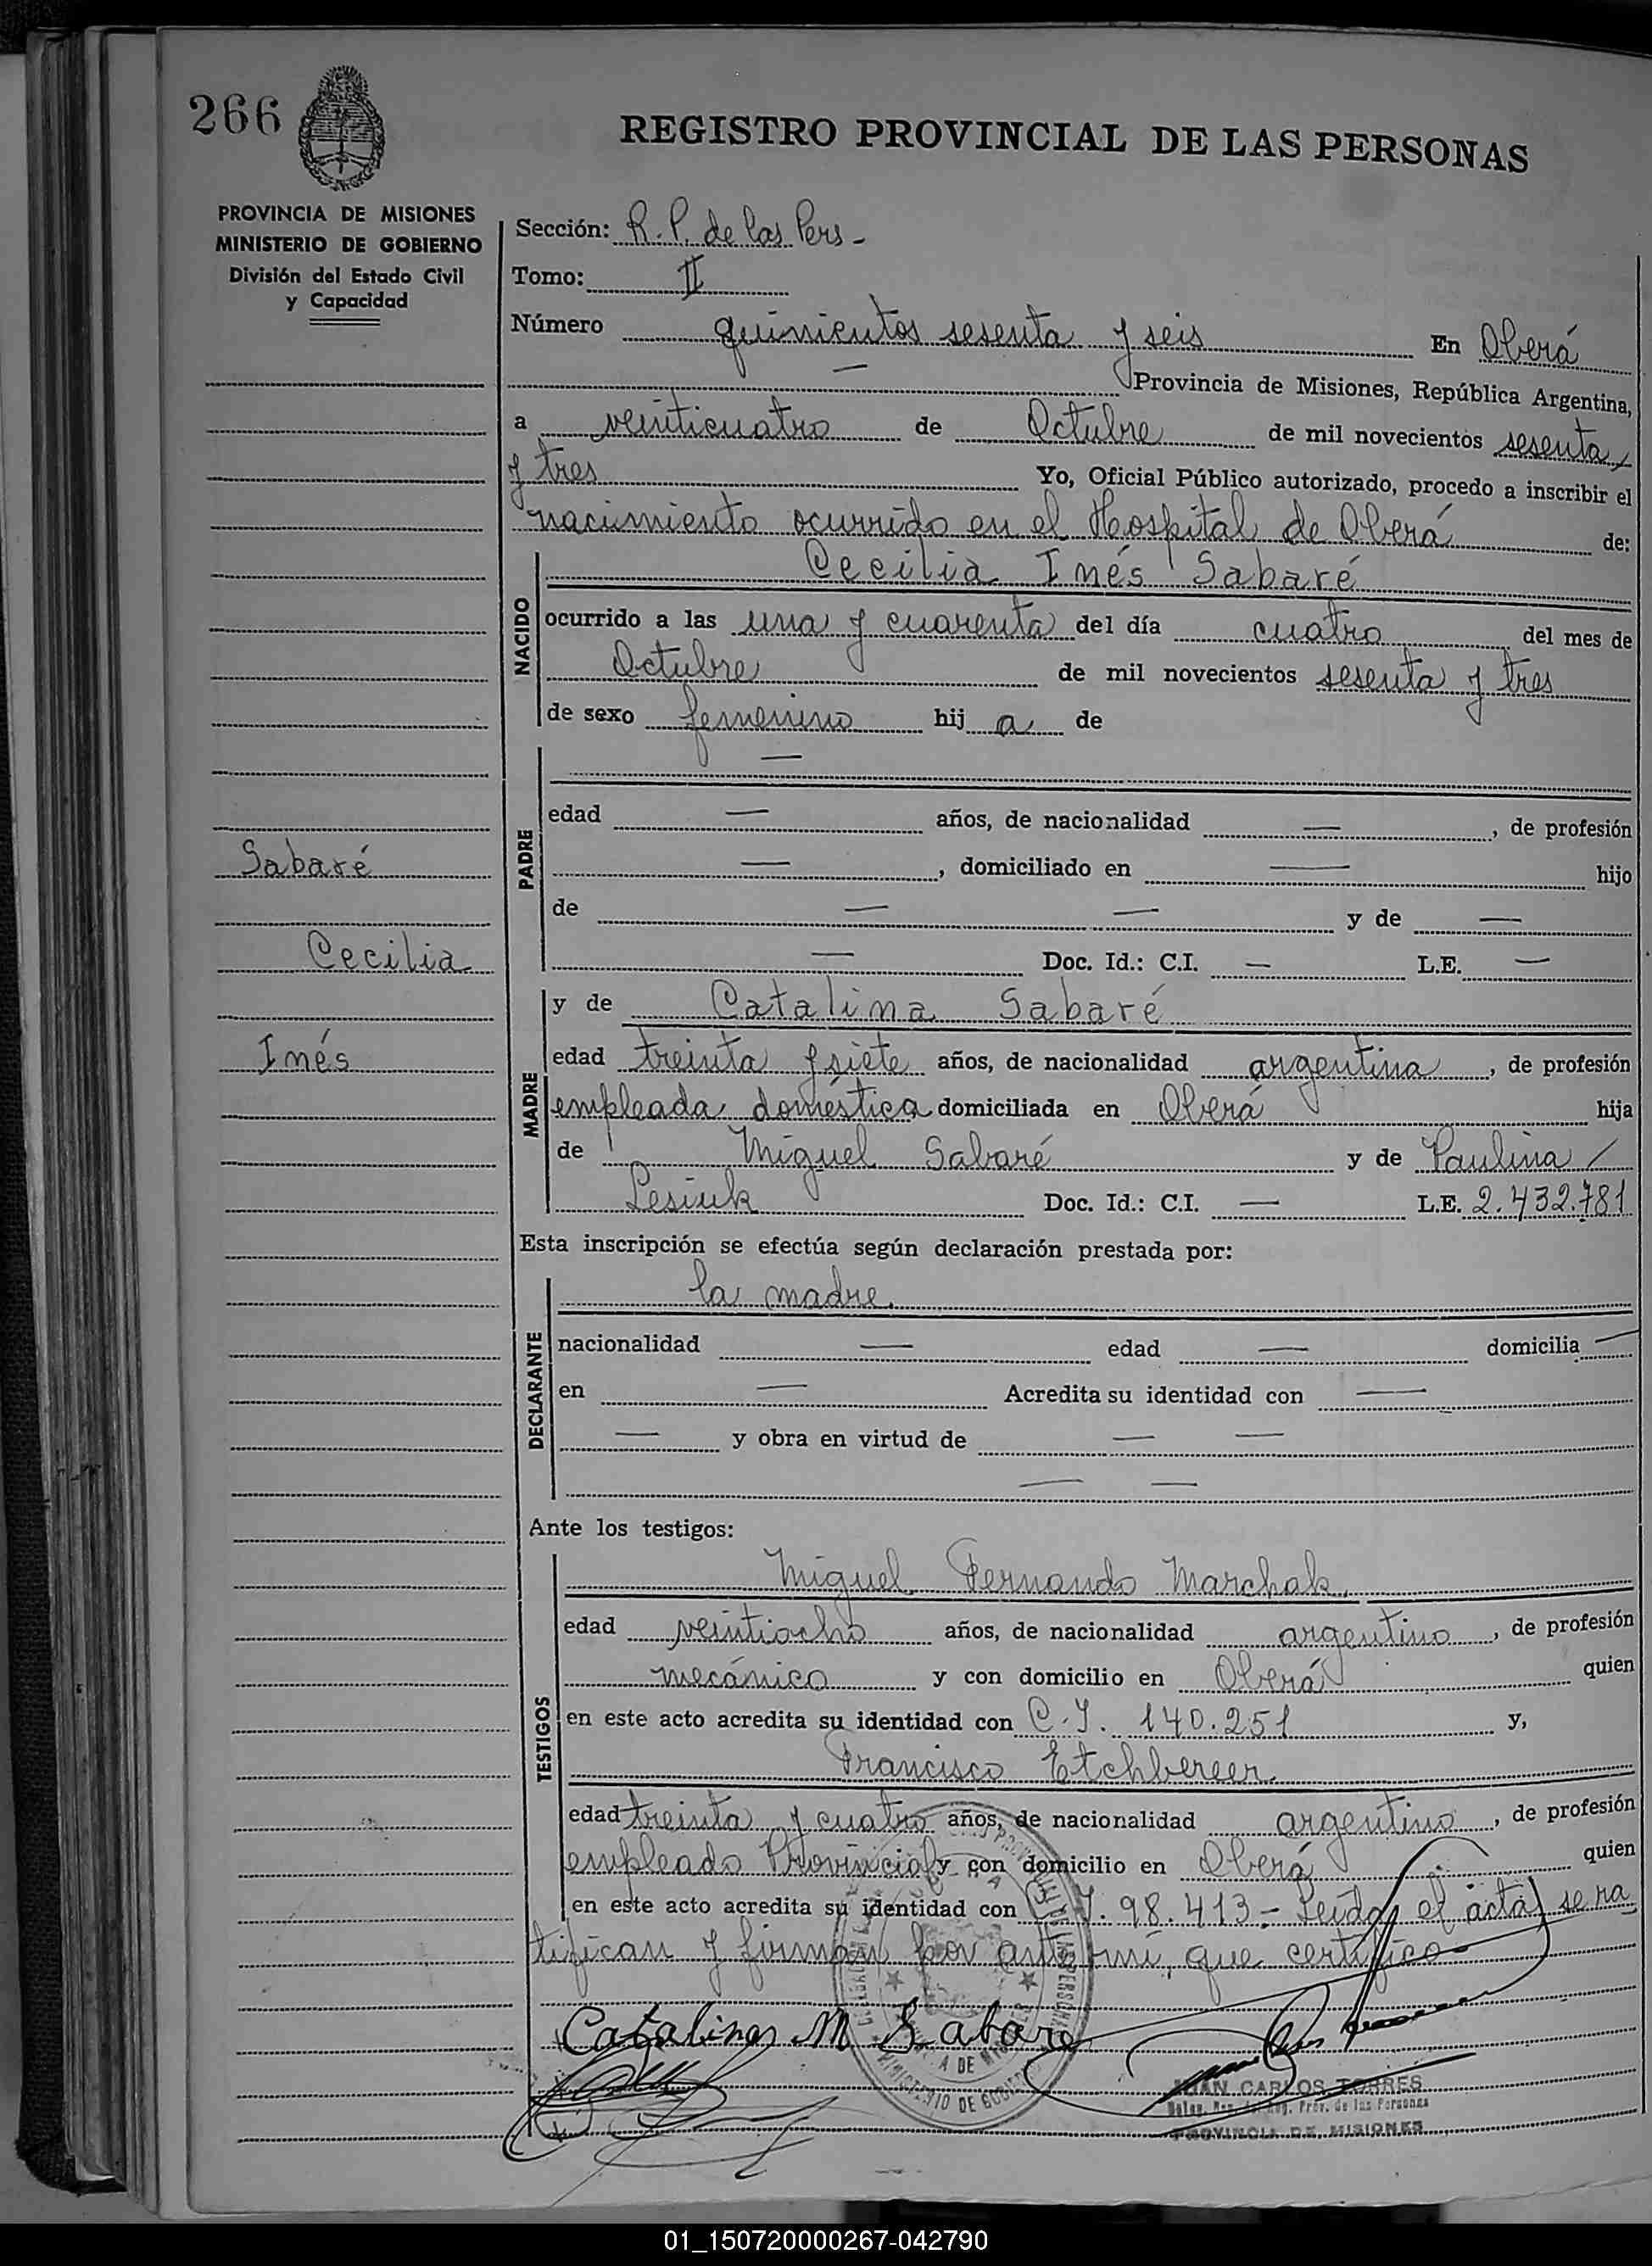 266
REGISTRO PROVINCIAL DE LAS PERSONAS
PROVINCIA DE MISIONES
MINISTERIO DE GOBIERNO
División del Estado Civil
y Capacidad
Sección: R. P. de las Pers -
Tomo: II
Número quinientos sesenta y seis En Oberá
— Provincia de Misiones, República Argentina,
a veinticuatro de Octubre de mil novecientos sesenta
y tres Yo, Oficial Público autorizado, procedo a inscribir el
nacimiento ocurrido en el Hospital de Oberá de:
NACIDO
Cecilia Inés Sabaré
ocurrido a las una y cuarenta del día cuatro del mes de
Octubre de mil novecientos sesenta y tres
de sexo femenino hij a de
PADRE
—
edad — años, de nacionalidad —, de profesión
—, domiciliado en — hijo
de — — y de —
— Doc. Id.: C.I. — L.E. —
Sabaré
Cecilia
Inés
MADRE
y de Catalina Sabaré
edad treinta y siete años, de nacionalidad argentina, de profesión
empleada doméstica domiciliada en Oberá hija
de Miguel Sabaré y de Paulina /
Lesiuk Doc. Id.: C.I. — L.E. 2.432.781
Esta inscripción se efectúa según declaración prestada por:
DECLARANTE
la madre.
nacionalidad — edad — domicilia —
en — Acredita su identidad con —
— y obra en virtud de — —
— —
Ante los testigos:
TESTIGOS
Miguel Fernando Marchak.
edad veintiocho años, de nacionalidad argentino, de profesión
mecánico y con domicilio en Oberá quien
en este acto acredita su identidad con C.I. 140.251 y,
Francisco Etchbereer
edad treinta y cuatro años, de nacionalidad argentino, de profesión
empleado Provincial y con domicilio en Oberá quien
en este acto acredita su identidad con C.I. 98.413 - Leída el acta, se ra
tifican y firman por ante mí, que certifico -
Catalina M Sabare
JUAN CARLOS TORRES
Prov. de las Personas
PROVINCIA DE MISIONES
01_150720000267-042790